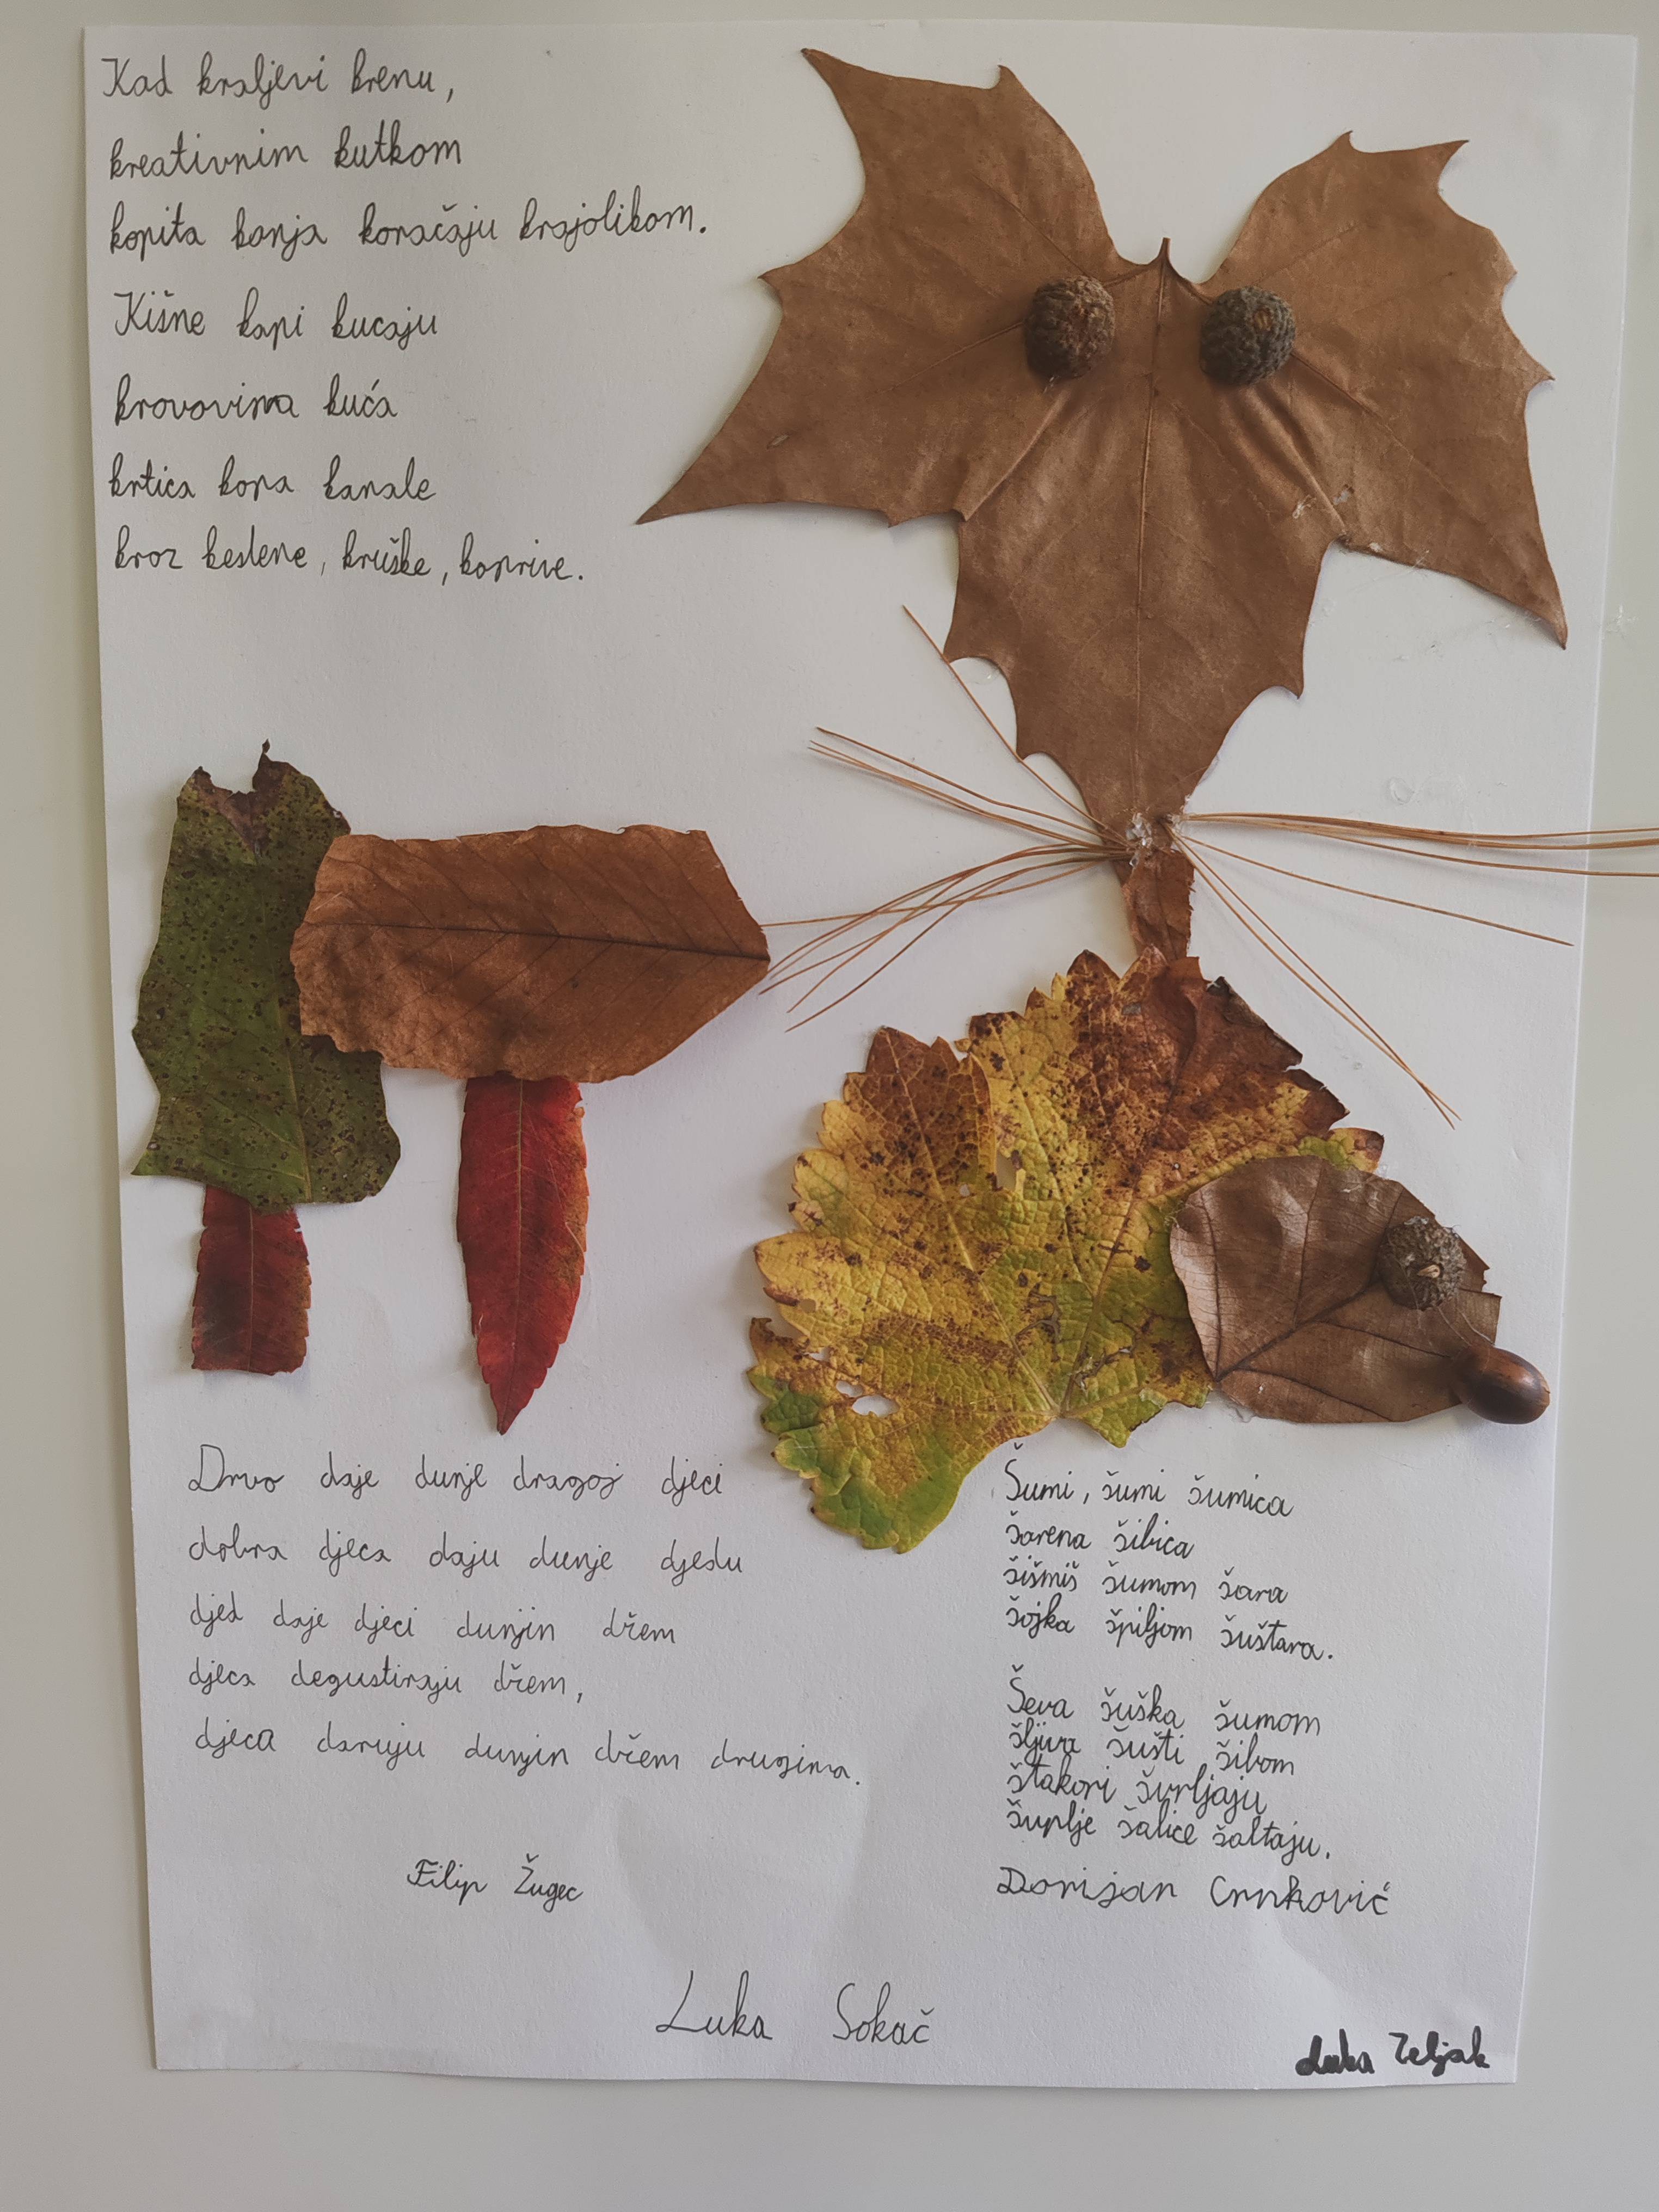 Kad kraljevi krenu,
kreativnim kutkom
kopita konja koračaju krajolikom.
Kišne kapi kucaju
krovovima kuća
krtica kopa kanale
kroz kestene, kruške, koprive.
Drvo daje dunje dragoj djeci
dobra djeca daju dunje djedu
djed daje djeci dunjin džem
djeca degustiraju džem,
djeca daruju dunjin džem drugima.
Filip Žugec
Šumi, šumi šumica
šarena šibica
šišmiš šumom šara
šojka špiljom šuštara.
Ševa šuška šumom
šljiva šušti šibom
štakori švrljaju
šuplje šalice šaltaju.
Dorijan Crnković
Luka Sokač
Luka Zeljak